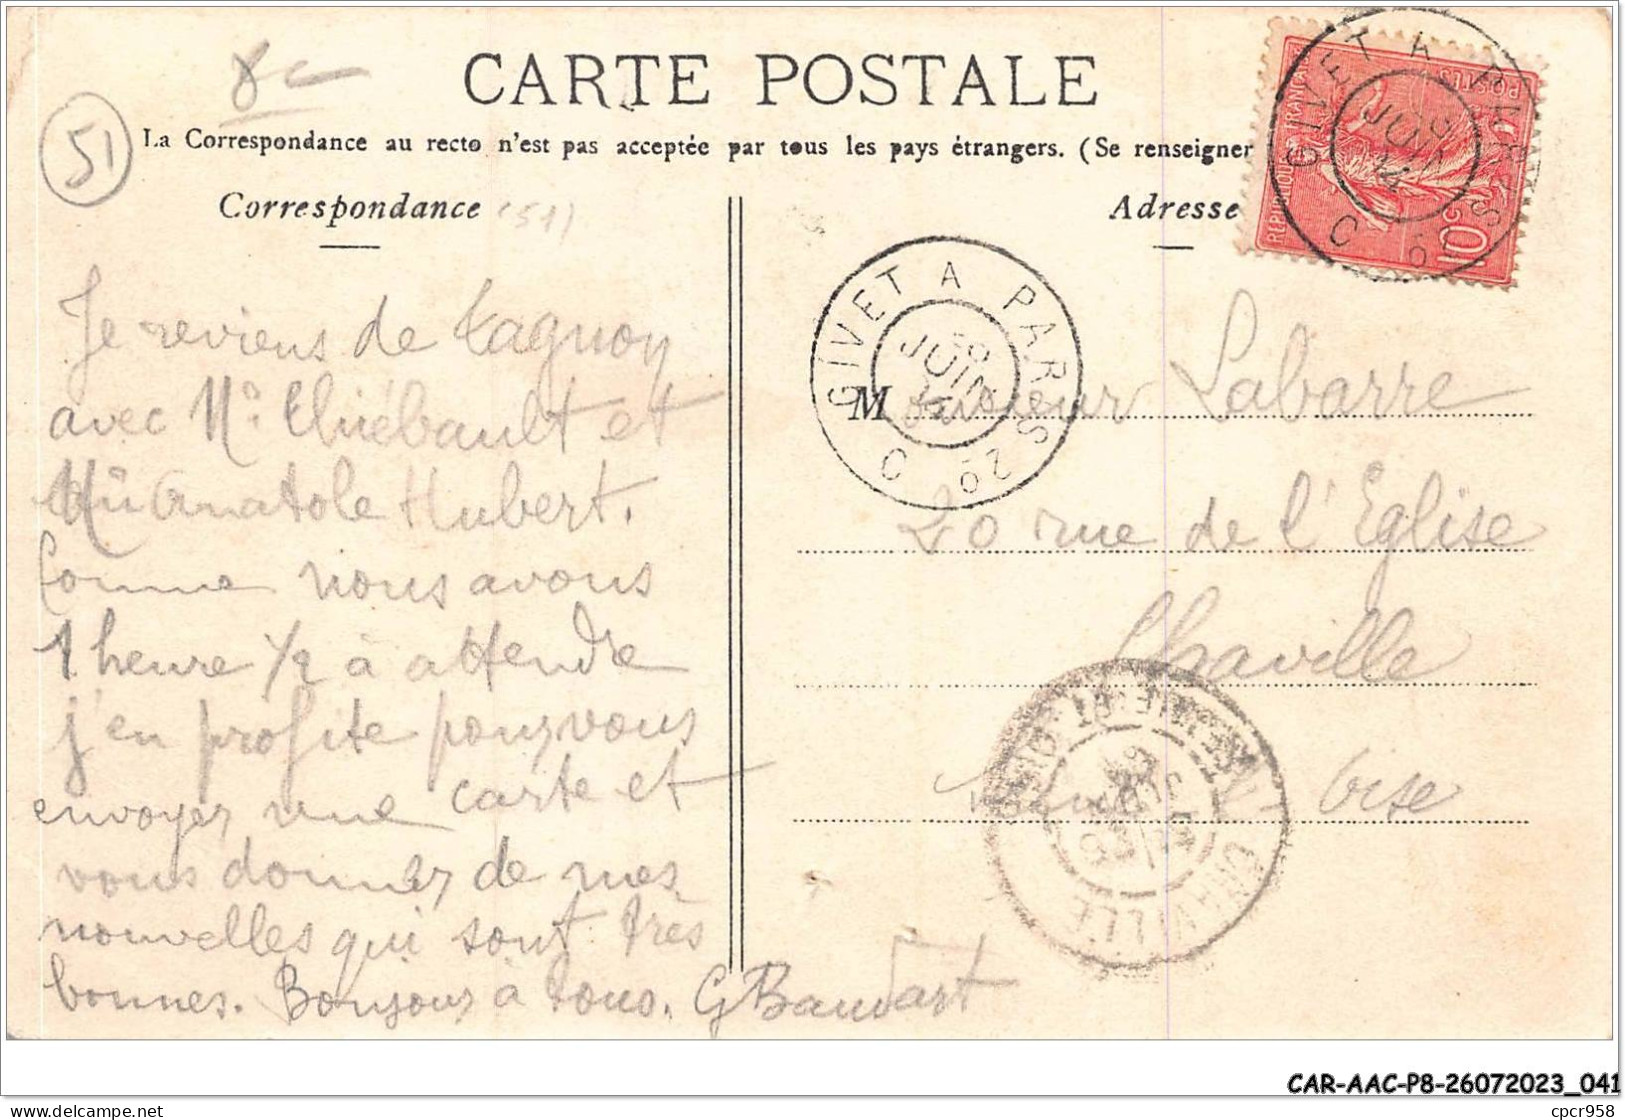 8c
51
CARTE POSTALE
La Correspondance au recto n'est pas acceptée par tous les pays étrangers. (Se renseigner
Correspondance (51)
Adresse
REPUBLIQUE FRANÇAISE
POSTES
10
GIVET A PARIS
JUIN
14
GIVET A PARIS
JUIN
Je reviens de Tagnon
avec Mr Thiébault et
Anatole Hubert.
Comme nous avons
1 heure 1/2 à attendre
j'en profite pour vous
envoyer une carte et
vous donner de mes
nouvelles qui sont très
bonnes. Bonjour à tous. G Baudart
Monsieur Labarre
20 rue de l'Eglise
Chaville
Oise
CHAVILLE
CAR-AAC-P8-26072023_041
delcampe.net
cpcr958